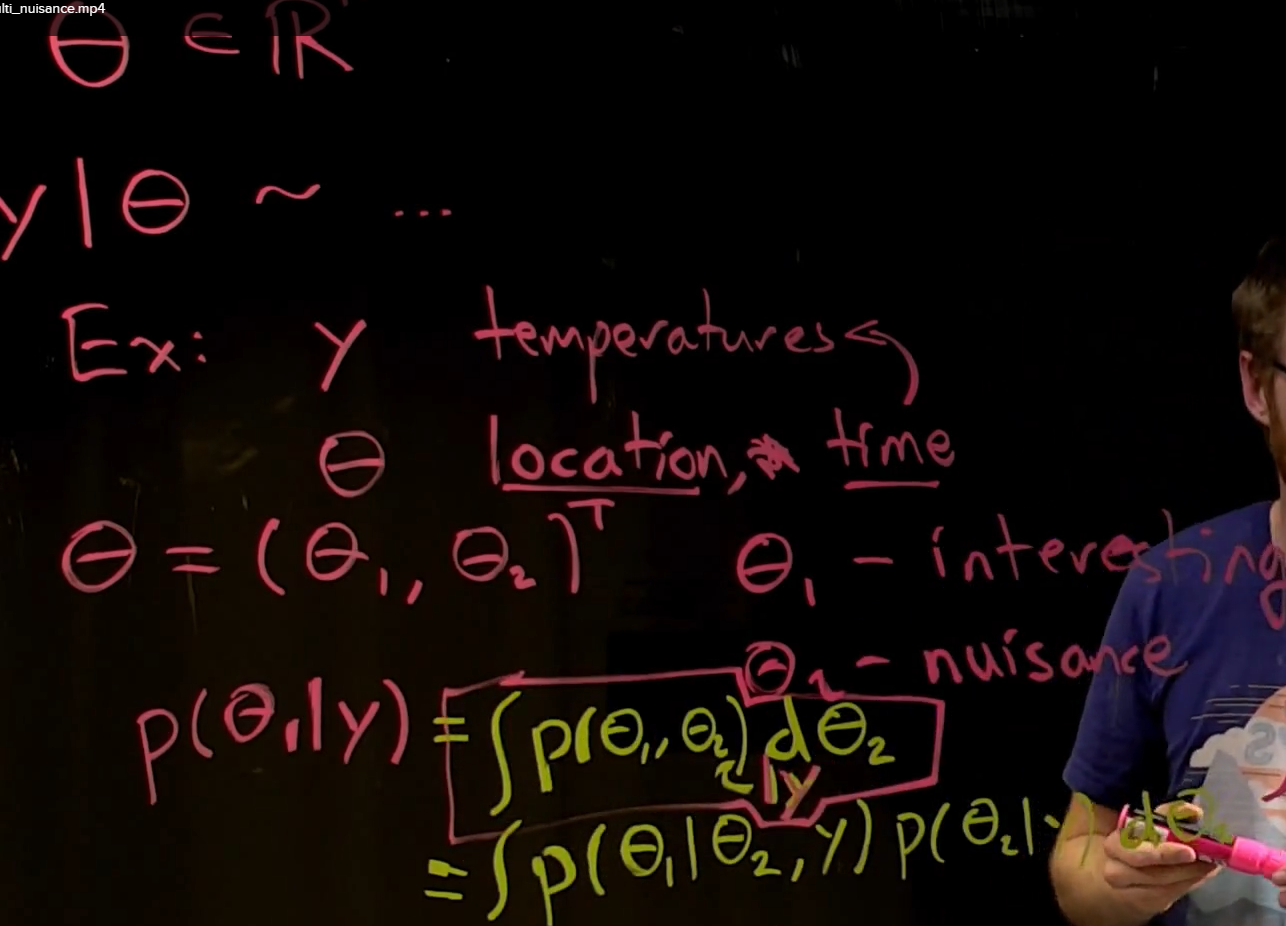 ulti_nuisance.mp4
θ ∈ ℝ
y | θ ~ ...
Ex: y temperatures
θ location, time
θ = (θ₁, θ₂)ᵀ θ₁ - interesting
θ₂ - nuisance
p(θ₁|y) = ∫ p(θ₁, θ₂) dθ₂
|y
= ∫ p(θ₁|θ₂, y) p(θ₂|y) dθ₂